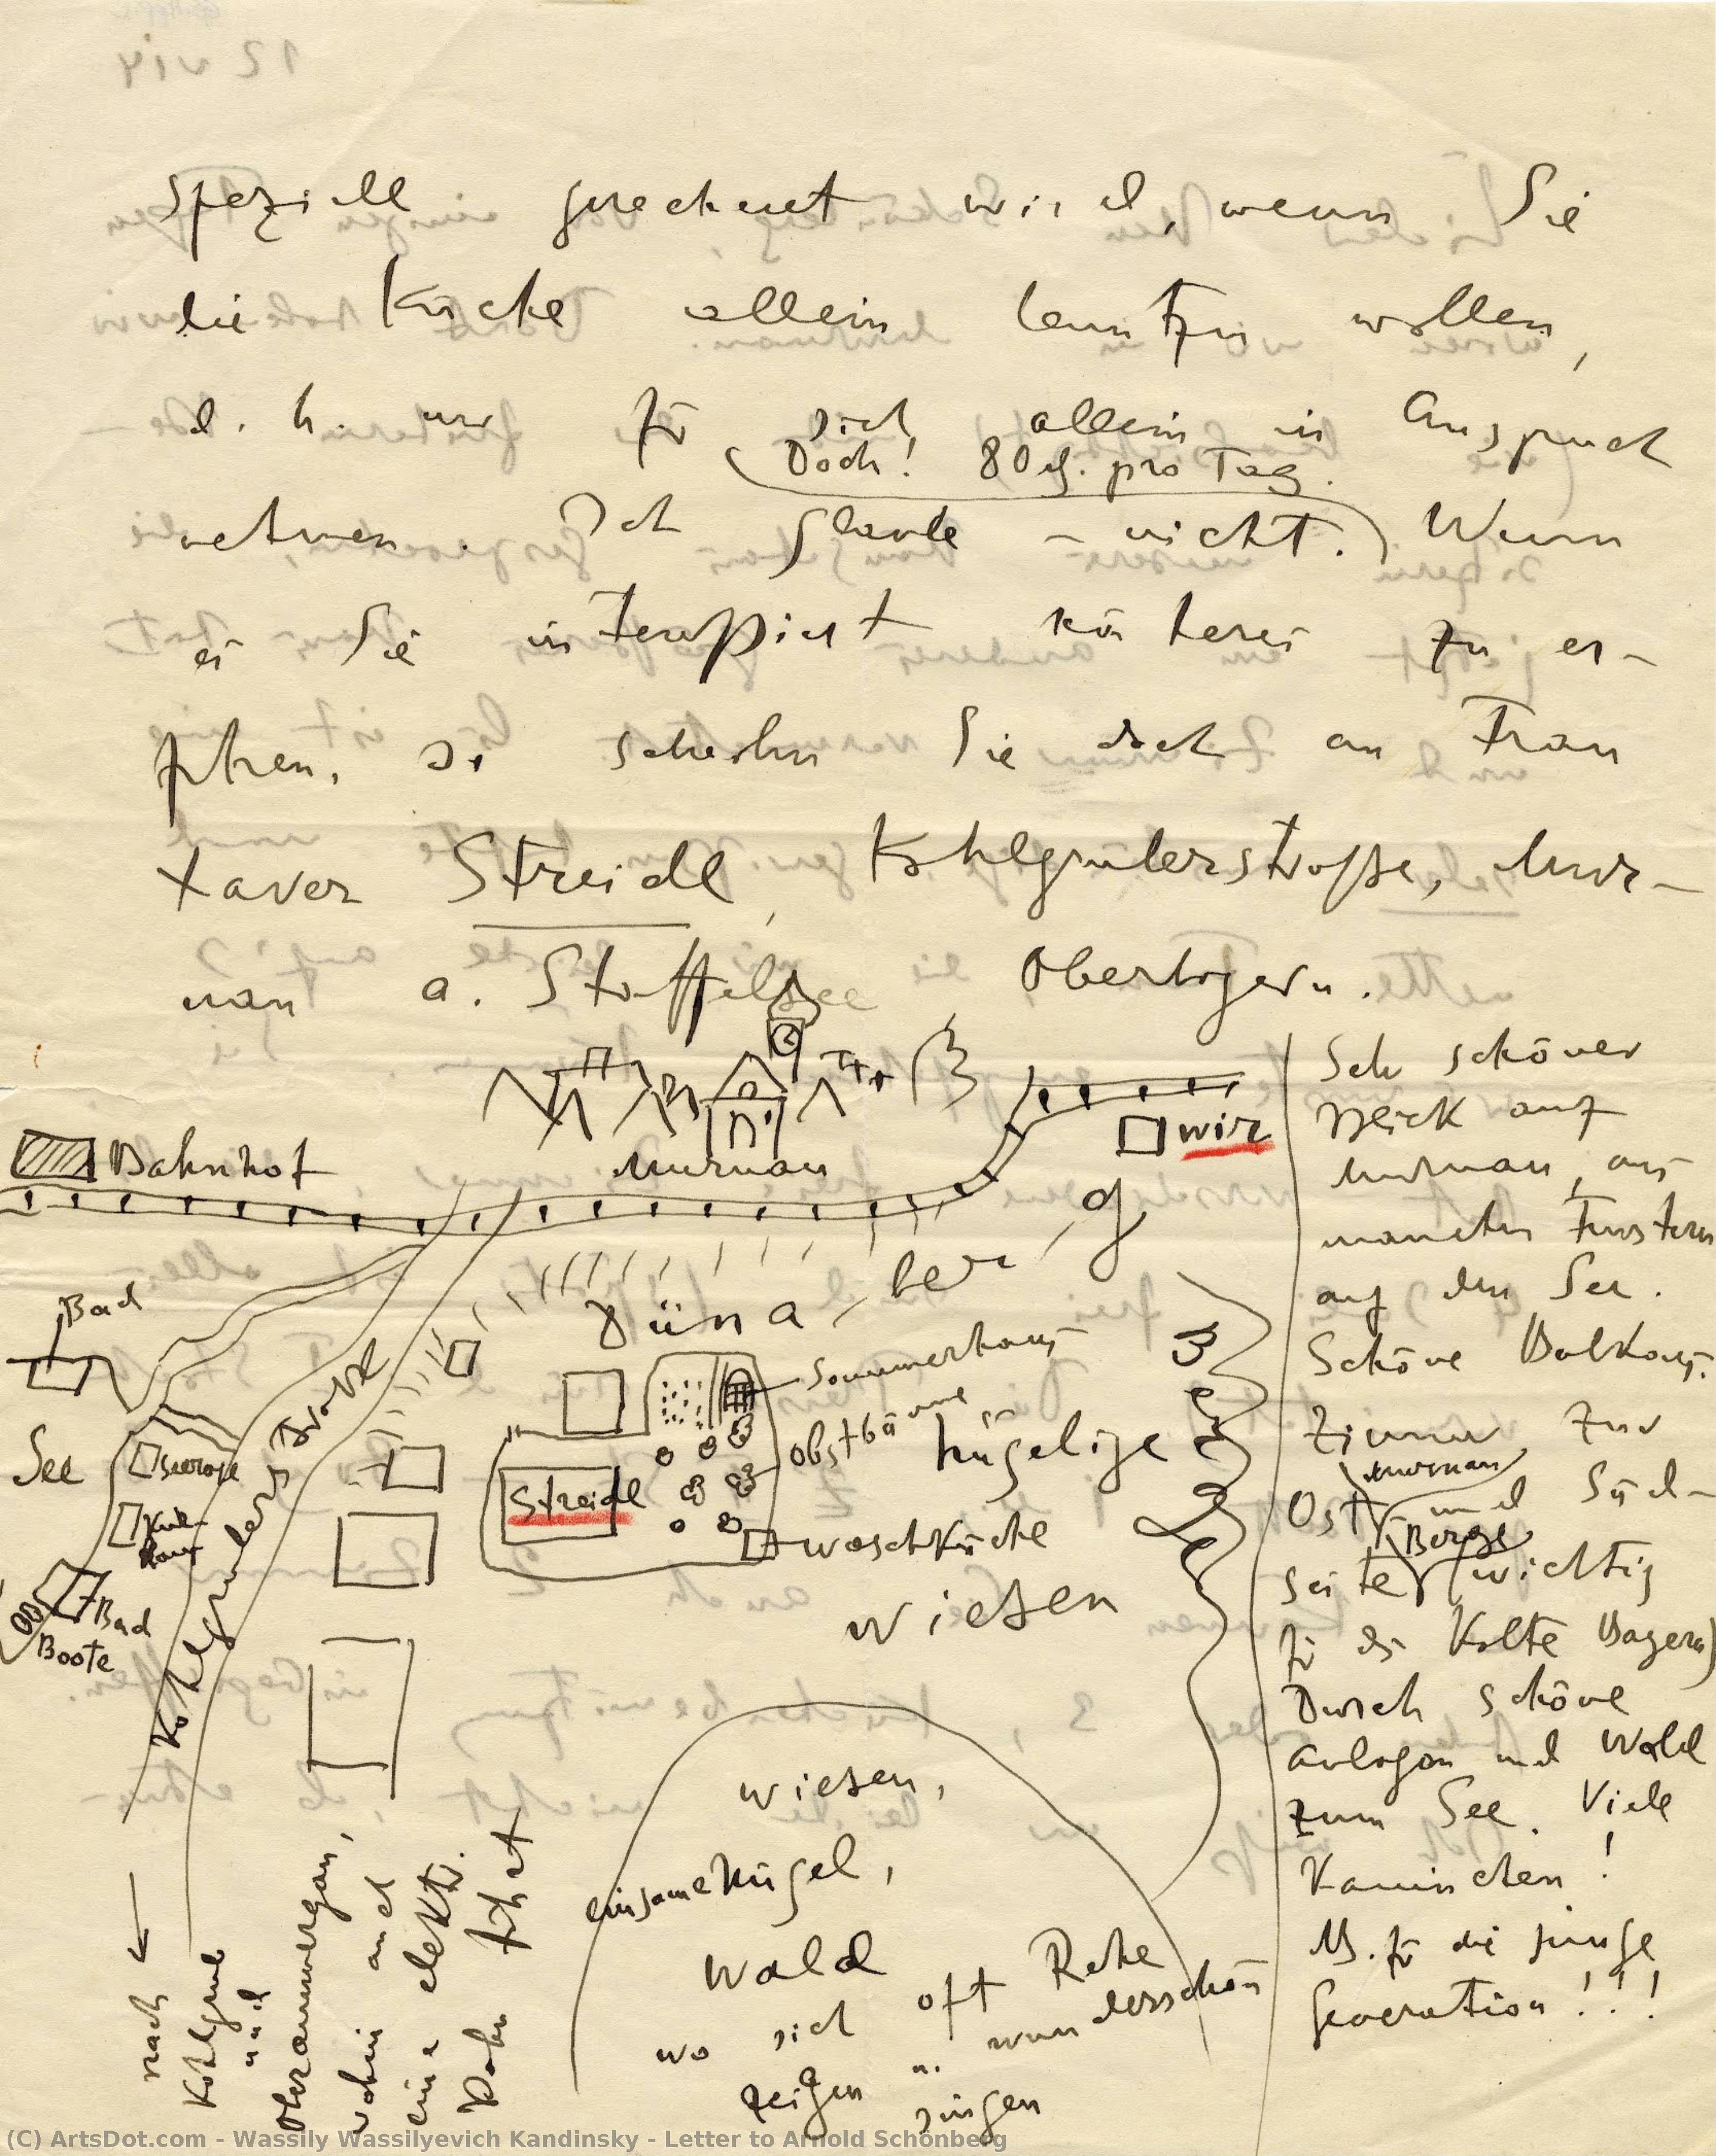 speziell gerechnet wird, wenn Sie
die Küche allein benutzen wollen,
d. h. nur für sich allein in Anspruch
Doch! 80 pro Tag.
nehmen. Ich glaube – nicht. Wenn
es Sie interessiert näheres zu er-
fahren, so schreiben Sie doch an Frau
Xaver Streidl, Kohlgruberstraße, Mur-
nau a. Staffelsee Oberbayern.
Bahnhof
Murnau
wir
Dünaberg
Bad
See
Seerose
Kur-
haus
Bad
Boote
Kohlgruberstraße
Streidl
Sommerhaus
Obstbäume
Waschküche
hügelige
Wiesen
Wiesen,
einsame Hügel,
Wald
wo sich oft Rehe
zeigen u. wunderschön
singen
nach
Kohlgrub
und
Oberammergau,
wohin auch
eine elektr.
Bahn fährt
Sehr schöner
Blick auf
Murnau, aus
manchen Fenstern
auf den See.
Schöne Balkons.
Zimmer zur
Murnau
Ost und Süd-
Berge
seite (wichtig
für das kalte Bayern)
Durch schöne
Anlagen und Wald
zum See. Viele
Kaninchen!
Bs. für die junge
Generation!!!
(C) ArtsDot.com - Wassily Wassilyevich Kandinsky - Letter to Arnold Schönberg